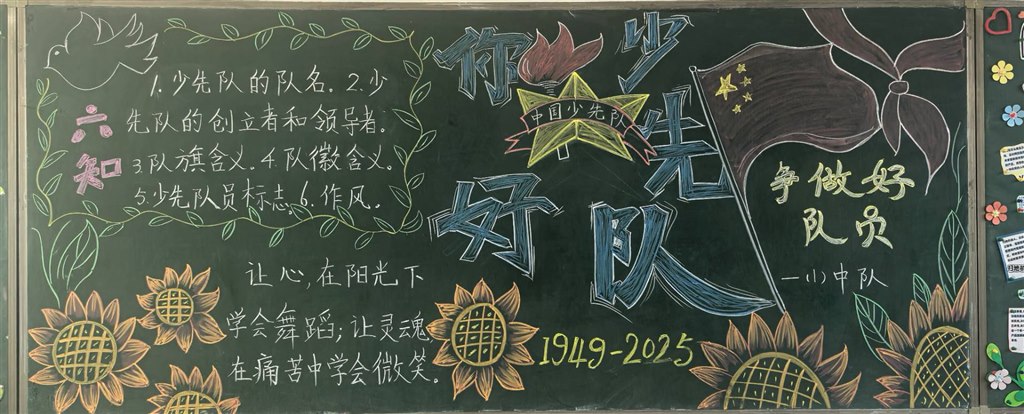 六知
1.少先队的队名。2.少
先队的创立者和领导者。
3.队旗含义。4.队徽含义。
5.少先队员标志。6.作风。
让心,在阳光下
学会舞蹈;让灵魂
在痛苦中学会微笑。
你好
少先队
中国少先队
1949-2025
争做好
队员
一(1)中队